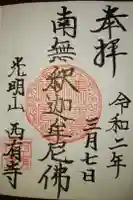 奉拝
令和二年
三月七日
南無釈迦牟尼佛
光明山
西有寺